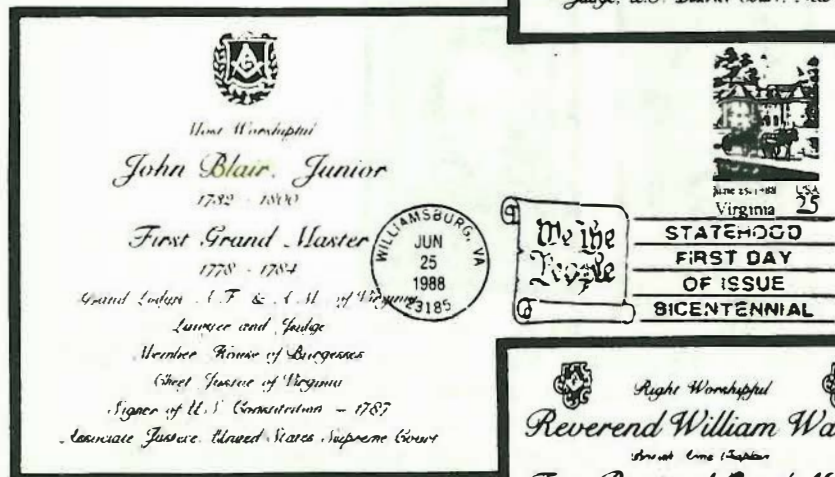 Judge, U.S. District Court, New
Most Worshipful
John Blair, Junior
1732 - 1800
First Grand Master
1778 - 1784
Grand Lodge A.F. & A.M. of Virginia
Lawyer and Judge
Member House of Burgesses
Chief Justice of Virginia
Signer of U.S. Constitution - 1787
Associate Justice United States Supreme Court
WILLIAMSBURG, VA
JUN
25
1988
23185
We the
People
June 25, 1788 USA
Virginia 25
STATEHOOD
FIRST DAY
OF ISSUE
BICENTENNIAL
Right Worshipful
Reverend William Wa